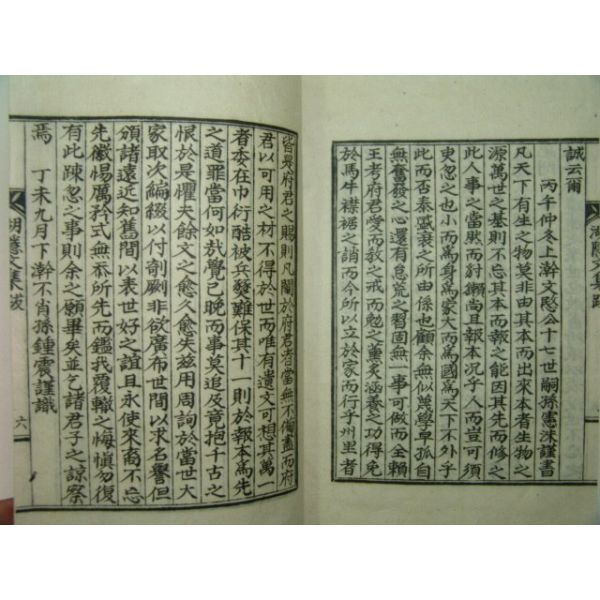 誠云爾
丙午仲冬上澣文愍公十七世嗣孫憲洙謹書
凡天下有生之物莫非由其本而出來本者生物之
源萬世之基則不求其本而報之能因其先而修之
此人事之當然而豺獺尚且報本況乎人而豈可須
臾忽之也小而爲身爲家大而爲國爲天下不外乎
此而否泰盛衰之所由係也顧余無似蔑學卓孤自
無奮發之心還有怠荒之習固無一事可做而全賴
王考府君愛而教之戒而勉之薰炙涵養之功得免
於馬牛襟裾之誚而今所以立於家而行乎州里者
皆是府君之賜則凡關於府君者當無不備盡而府
君以可用之材不得於世而唯有遺文可想其萬一
者李在巾衍酷被兵燹難保其十一則於報本爲先
之道罪當何如哉覺已晚而事莫追及竟抱千古之
恨於是懼夫餘文之愈久愈失玆用周詢於當世大
家取次編綴以付剞劂非欲廣布世間以求名譽但
頒諸遠近知舊間以表世好之誼且永使來裔不忘
先徽惕厲矜式無忝所先而鑑我覆轍之悔愼勿復
有此疎忽之事則余之願畢矣並乞諸君子之諒察
焉 丁未九月下澣不肖孫鍾震謹識
文集跋
六